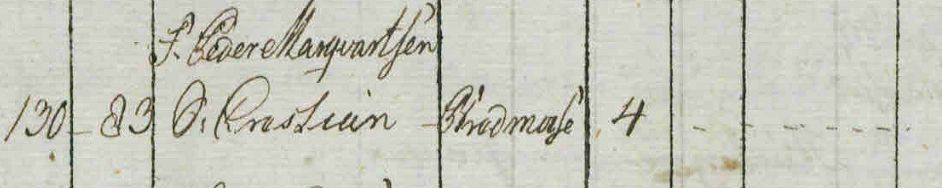 F. Peder Marqvartsen
130 - 83 S. Crestian Strodmose 4 - - - - - - -